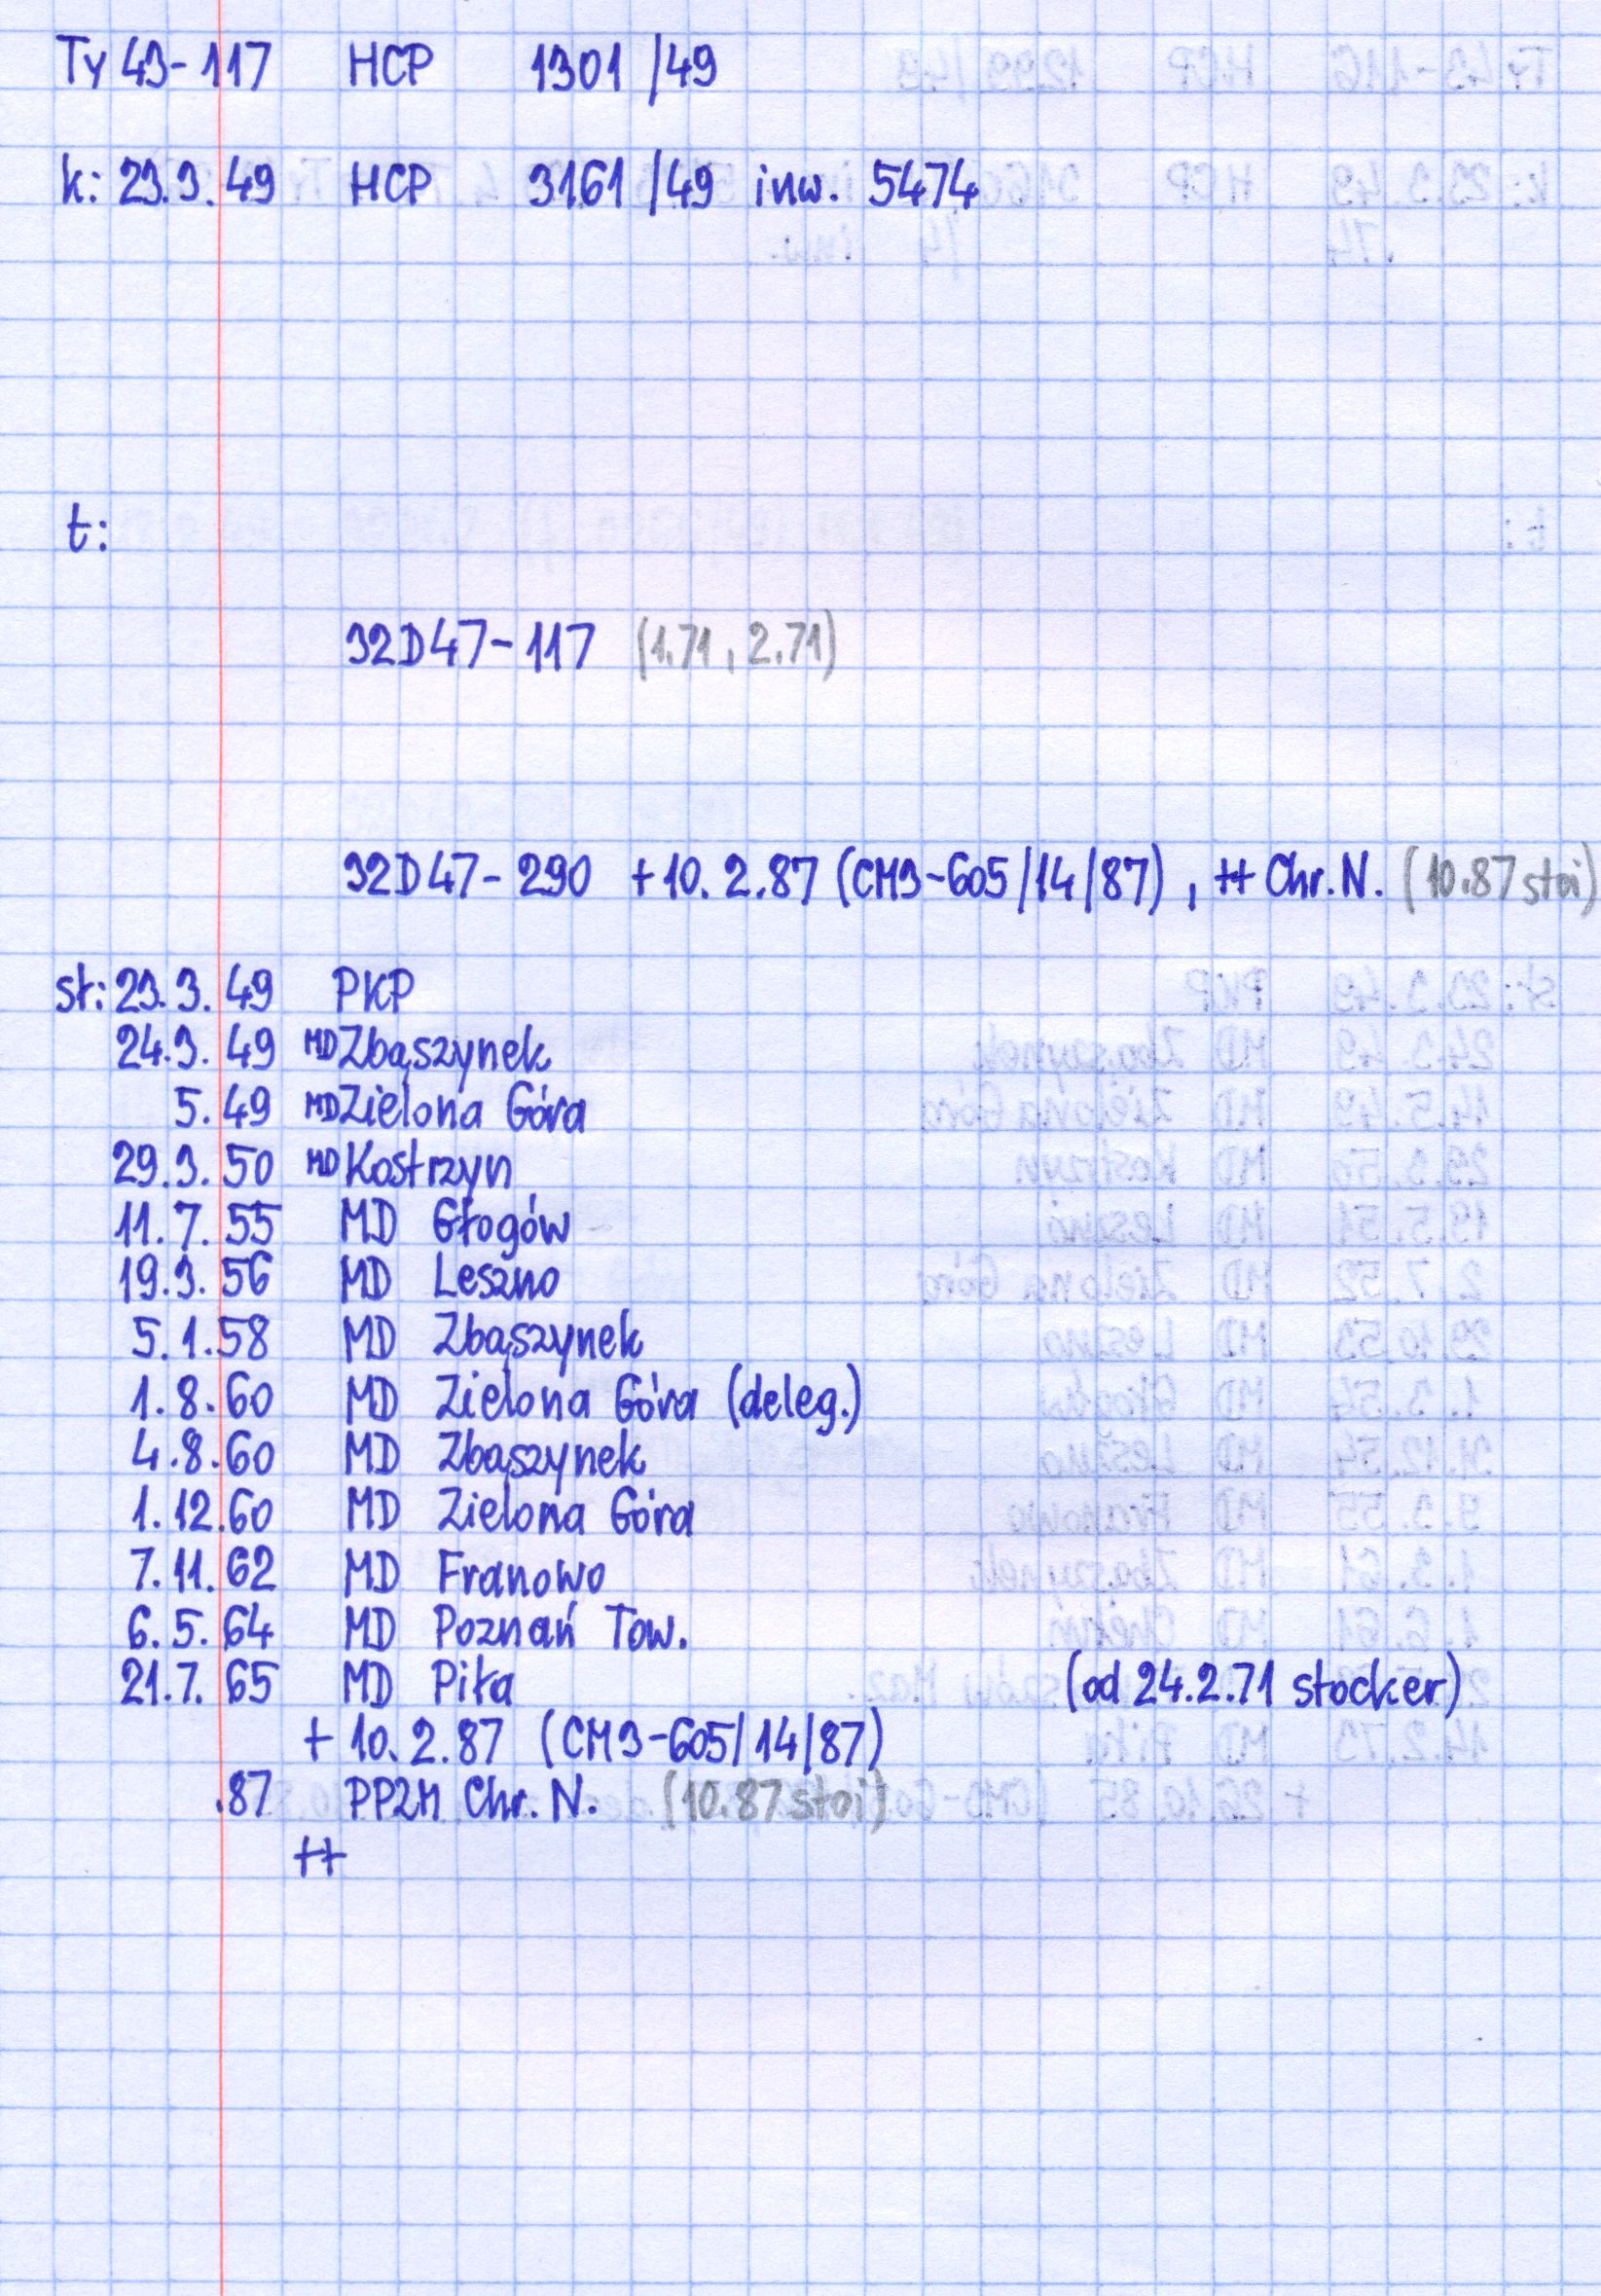 Ty 43-117 HCP 1301/49
k: 23.3.49 HCP 3161/49 inw. 5474
t:
32D47-117 (1.71, 2.71)
32D47-290 +10.2.87 (CM3-605/14/87), ++ Chr.N. (10.87 stoi)
st: 23.3.49 PKP
24.3.49 MD Zbąszynek
5.49 MD Zielona Góra
29.3.50 MD Kostrzyn
11.7.55 MD Głogów
19.3.56 MD Leszno
5.1.58 MD Zbąszynek
1.8.60 MD Zielona Góra (deleg.)
4.8.60 MD Zbąszynek
1.12.60 MD Zielona Góra
7.11.62 MD Franowo
6.5.64 MD Poznań Tow.
21.7.65 MD Piła (od 24.2.71 stocker)
+ 10.2.87 (CM3-605/14/87)
.87 PPZM Chr.N. (10.87 stoi)
++